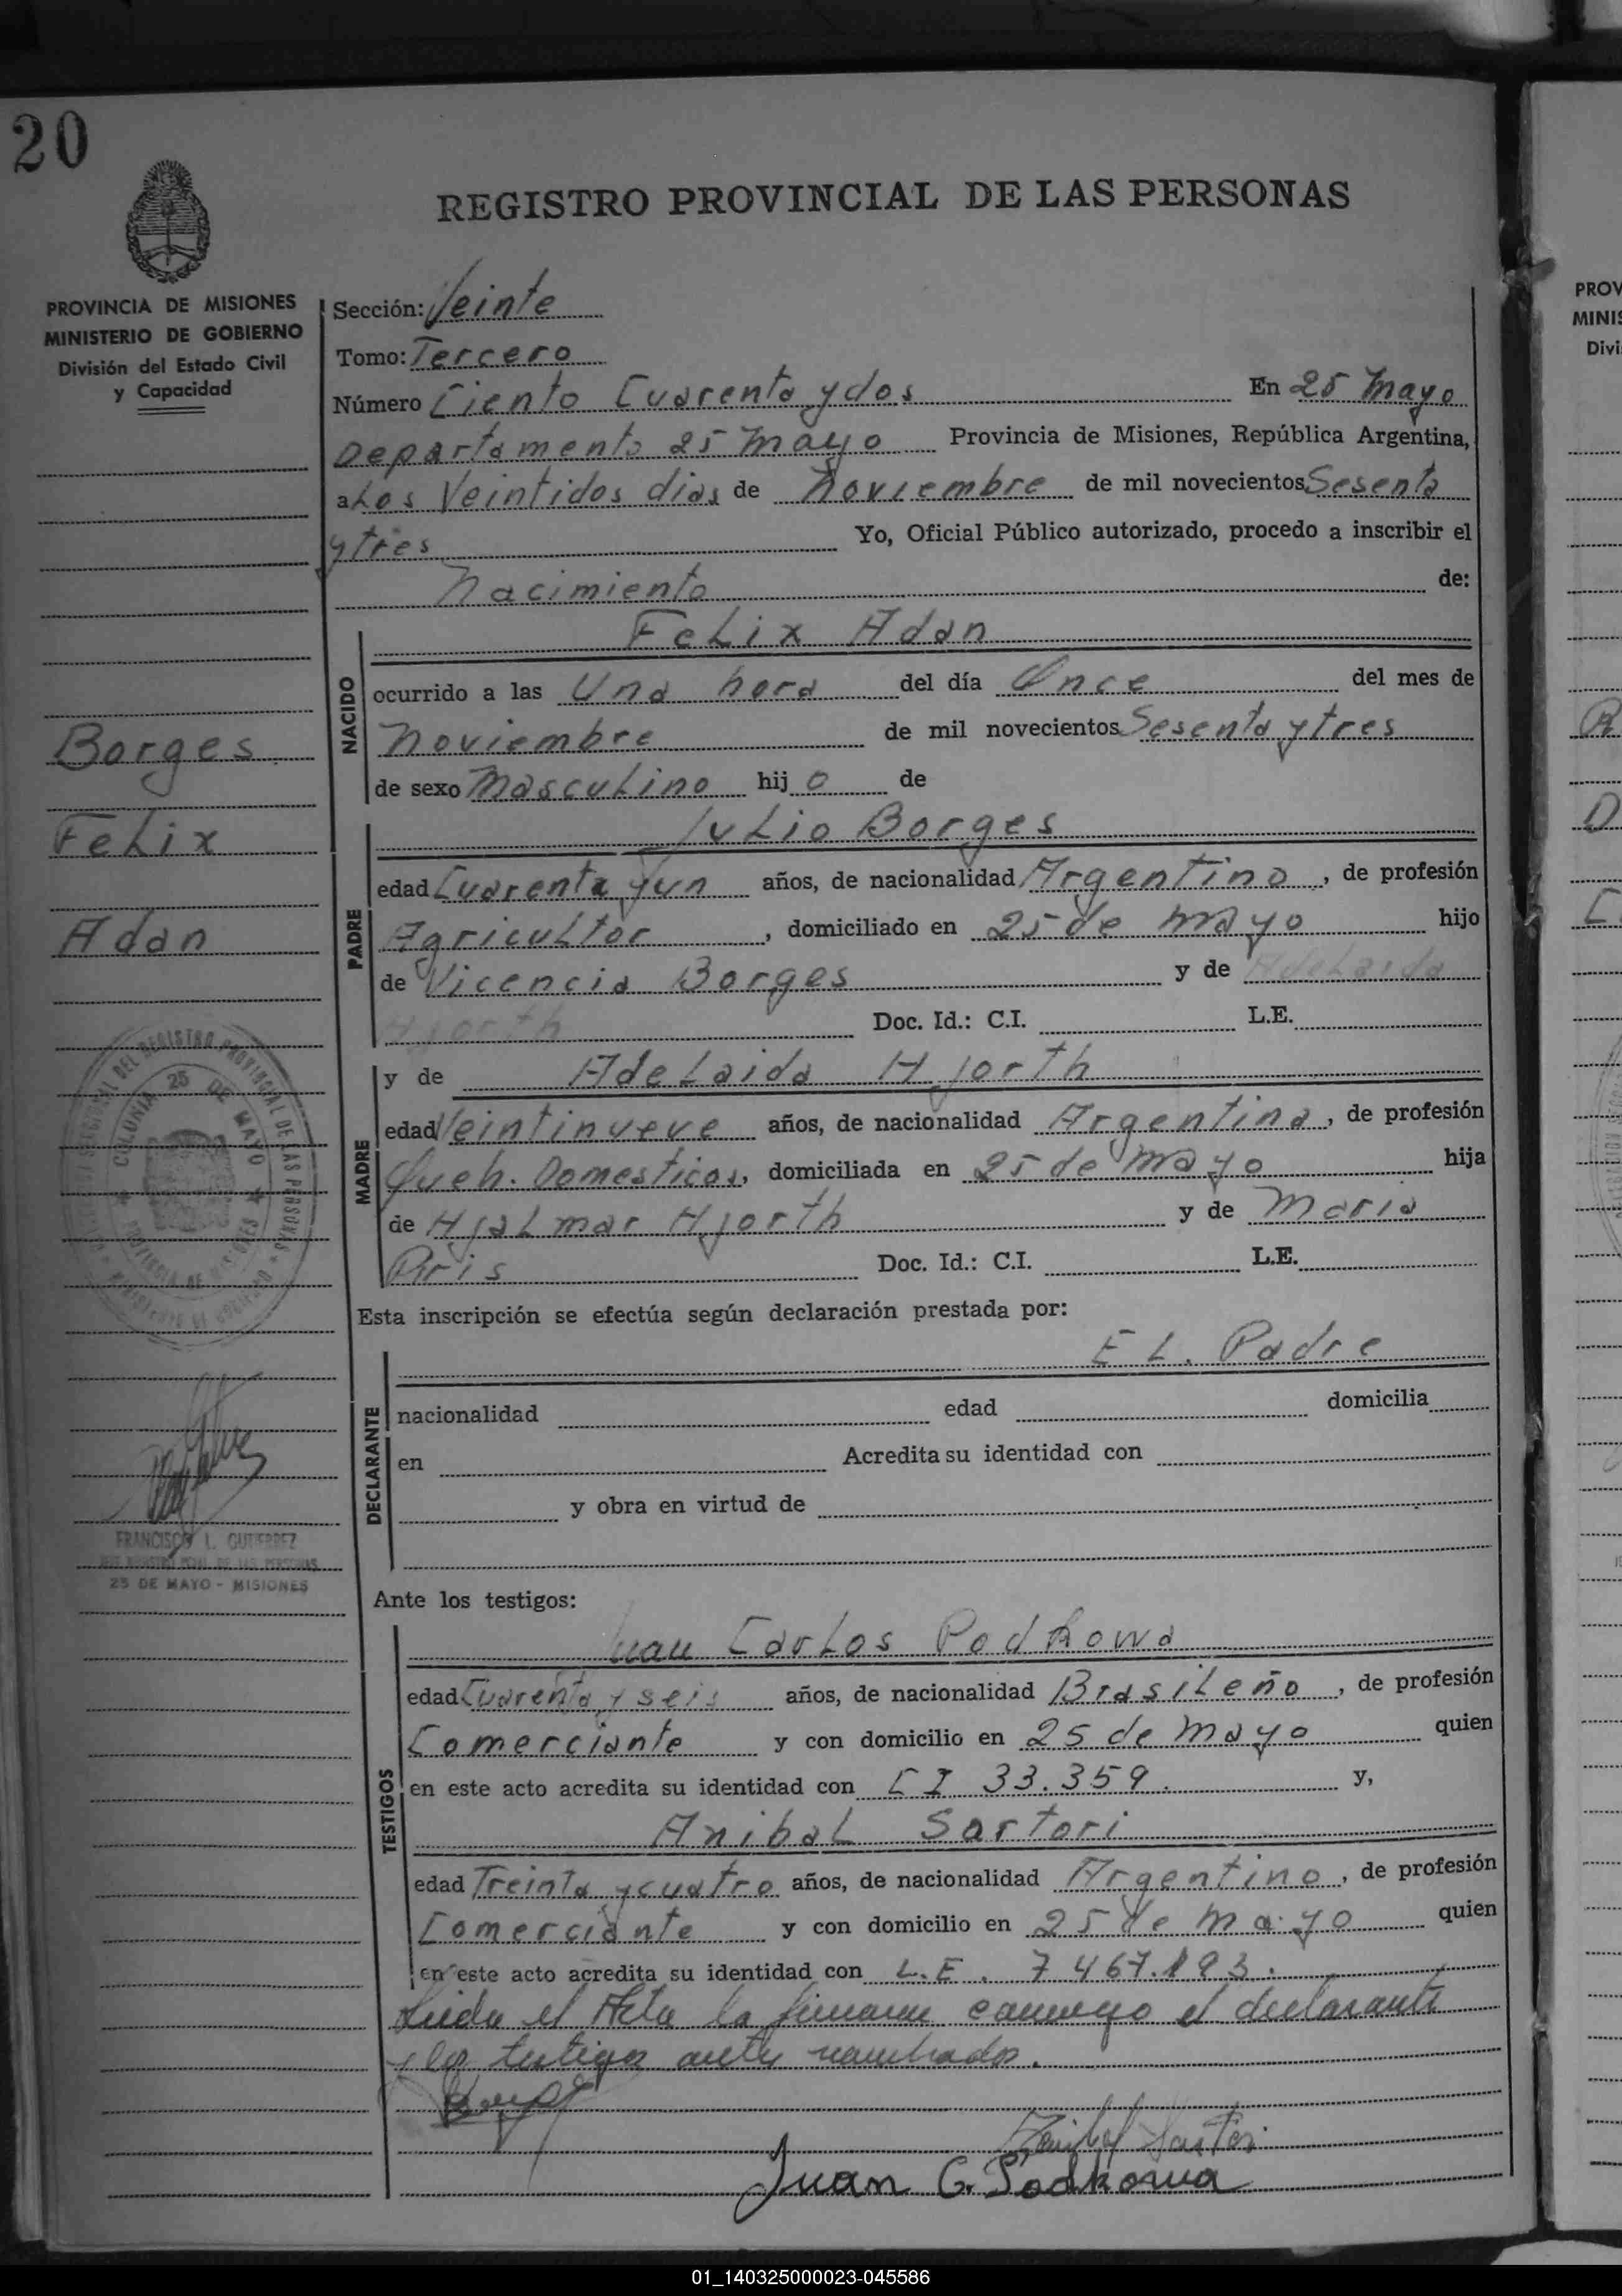 20
REGISTRO PROVINCIAL DE LAS PERSONAS
PROVINCIA DE MISIONES
MINISTERIO DE GOBIERNO
División del Estado Civil
y Capacidad
Borges
Felix
Adan
COLONIA 25 DE MAYO
FRANCISCO L. GUTIERREZ
25 DE MAYO - MISIONES
Sección: Veinte
Tomo: Tercero
Número Ciento Cuarenta y dos En 25 Mayo
Departamento 25 Mayo Provincia de Misiones, República Argentina,
a Los Veintidos dias de Noviembre de mil novecientos Sesenta
y tres Yo, Oficial Público autorizado, procedo a inscribir el
Nacimiento de:
NACIDO
Felix Adan
ocurrido a las Una hora del día Once del mes de
Noviembre de mil novecientos Sesenta y tres
de sexo Masculino hij o de
PADRE
Julio Borges
edad Cuarenta y un años, de nacionalidad Argentino, de profesión
Agricultor, domiciliado en 25 de Mayo hijo
de Vicencia Borges y de Adelaida
Hjorth Doc. Id.: C.I. L.E.
MADRE
y de Adelaida Hjorth
edad Veintinueve años, de nacionalidad Argentina, de profesión
Queh. Domesticos, domiciliada en 25 de Mayo hija
de Hjalmar Hjorth y de Maria
Piris Doc. Id.: C.I. L.E.
Esta inscripción se efectúa según declaración prestada por:
DECLARANTE
EL. Padre
nacionalidad edad domicilia
en Acredita su identidad con
y obra en virtud de
Ante los testigos:
TESTIGOS
Juan Carlos Podkowa
edad Cuarenta y seis años, de nacionalidad Brasileño, de profesión
Comerciante y con domicilio en 25 de Mayo quien
en este acto acredita su identidad con CI 33.359. y,
Anibal Sartori
edad Treinta y cuatro años, de nacionalidad Argentino, de profesión
Comerciante y con domicilio en 25 de Mayo quien
en este acto acredita su identidad con L.E. 7467.193.
Leida el Acta la firman conmigo el declarante
y los testigos antes nombrados.
Anibal Sartori
Juan C. Podkowa
PROV
MINIS
Divi
01_140325000023-045586